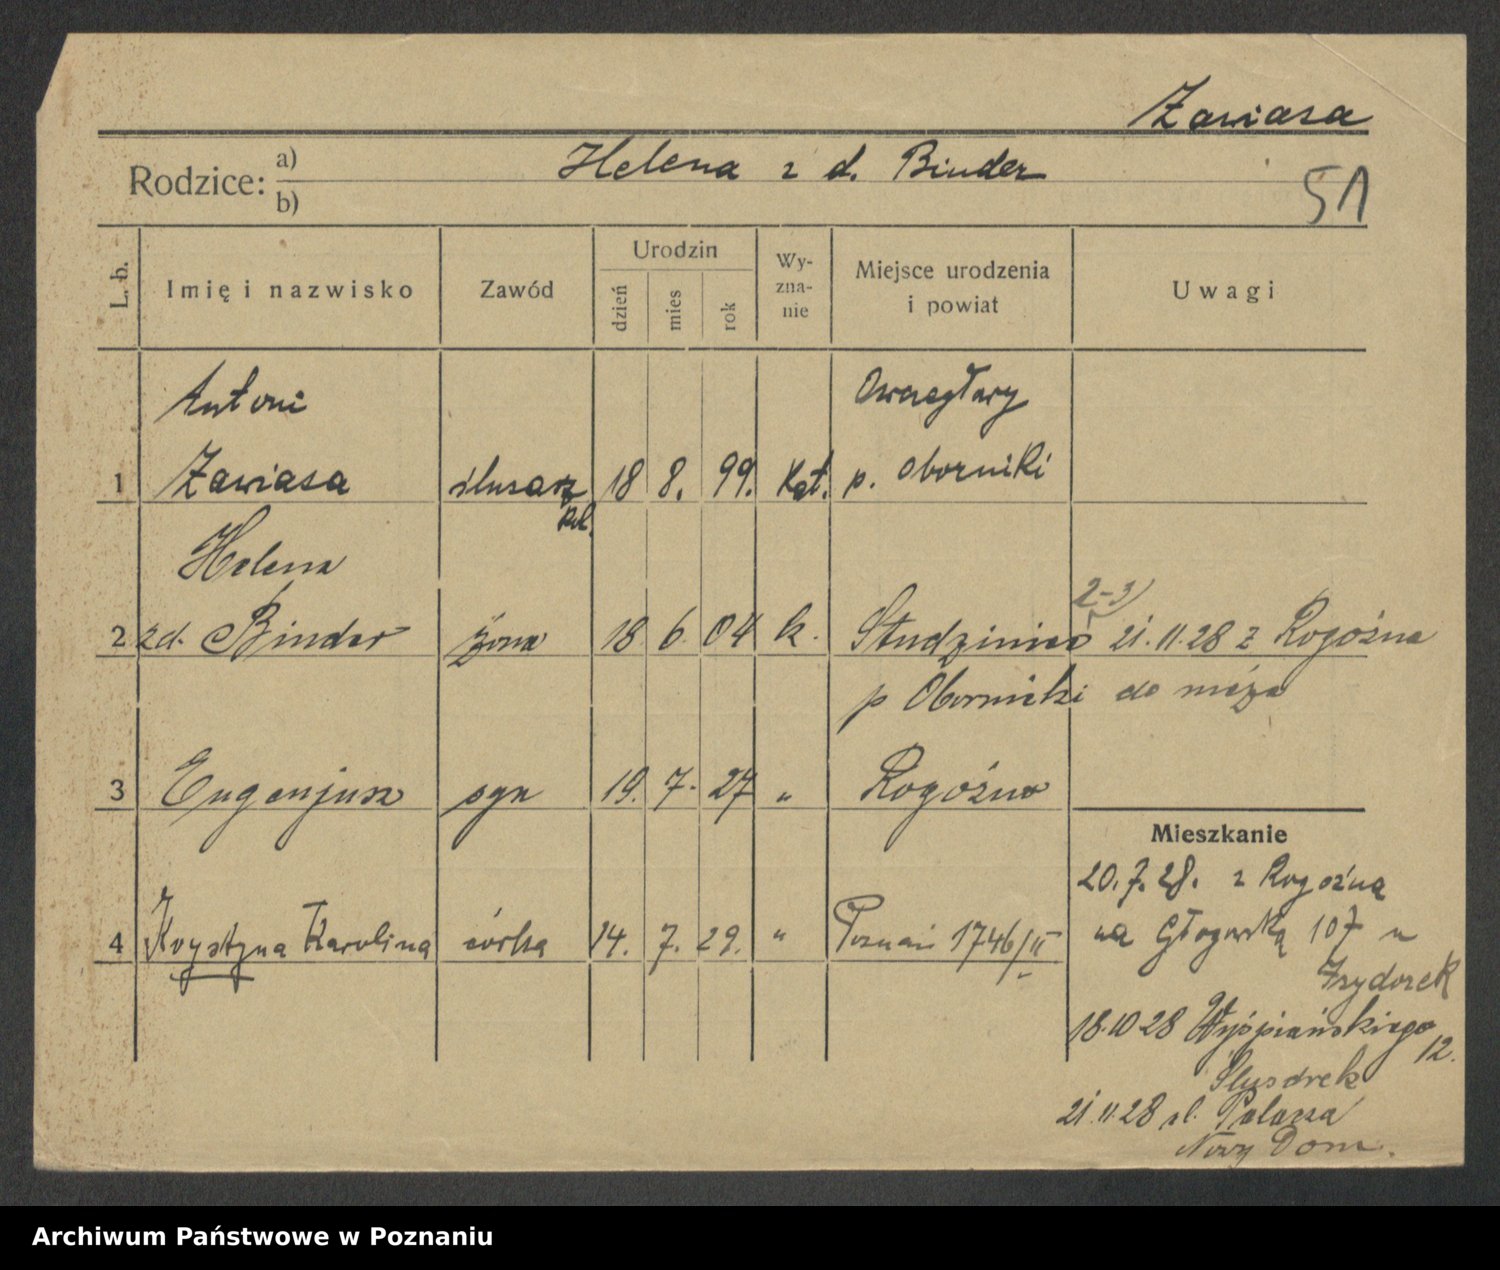 Zawiasa
Rodzice: a) Helena z d. Binder
b)
51
L. b. Imię i nazwisko Zawód Urodzin dzień mies rok Wy-zna-nie Miejsce urodzenia i powiat Uwagi
Antoni
1 Zawiasa ślusarz kol. 18 8. 99. Kat. p. Oborniki
Helena
2-3)
2 zd. Binder żona 18 6. 04 k. Studziniec 21.11.28 z Rogoźna
p Oborniki do męża
3 Eugenjusz syn 19. 7. 27 " Rogoźno
Mieszkanie
20.7.28. z Rogoźna
na Głogowską 107 u
4 Krystyna Karolina córka 14. 7. 29. " Poznań 1746/II
Izydorek
18.10 28 Wyspiańskiego 12.
21.11.28 ul.
Nowy Dom.
Archiwum Państwowe w Poznaniu